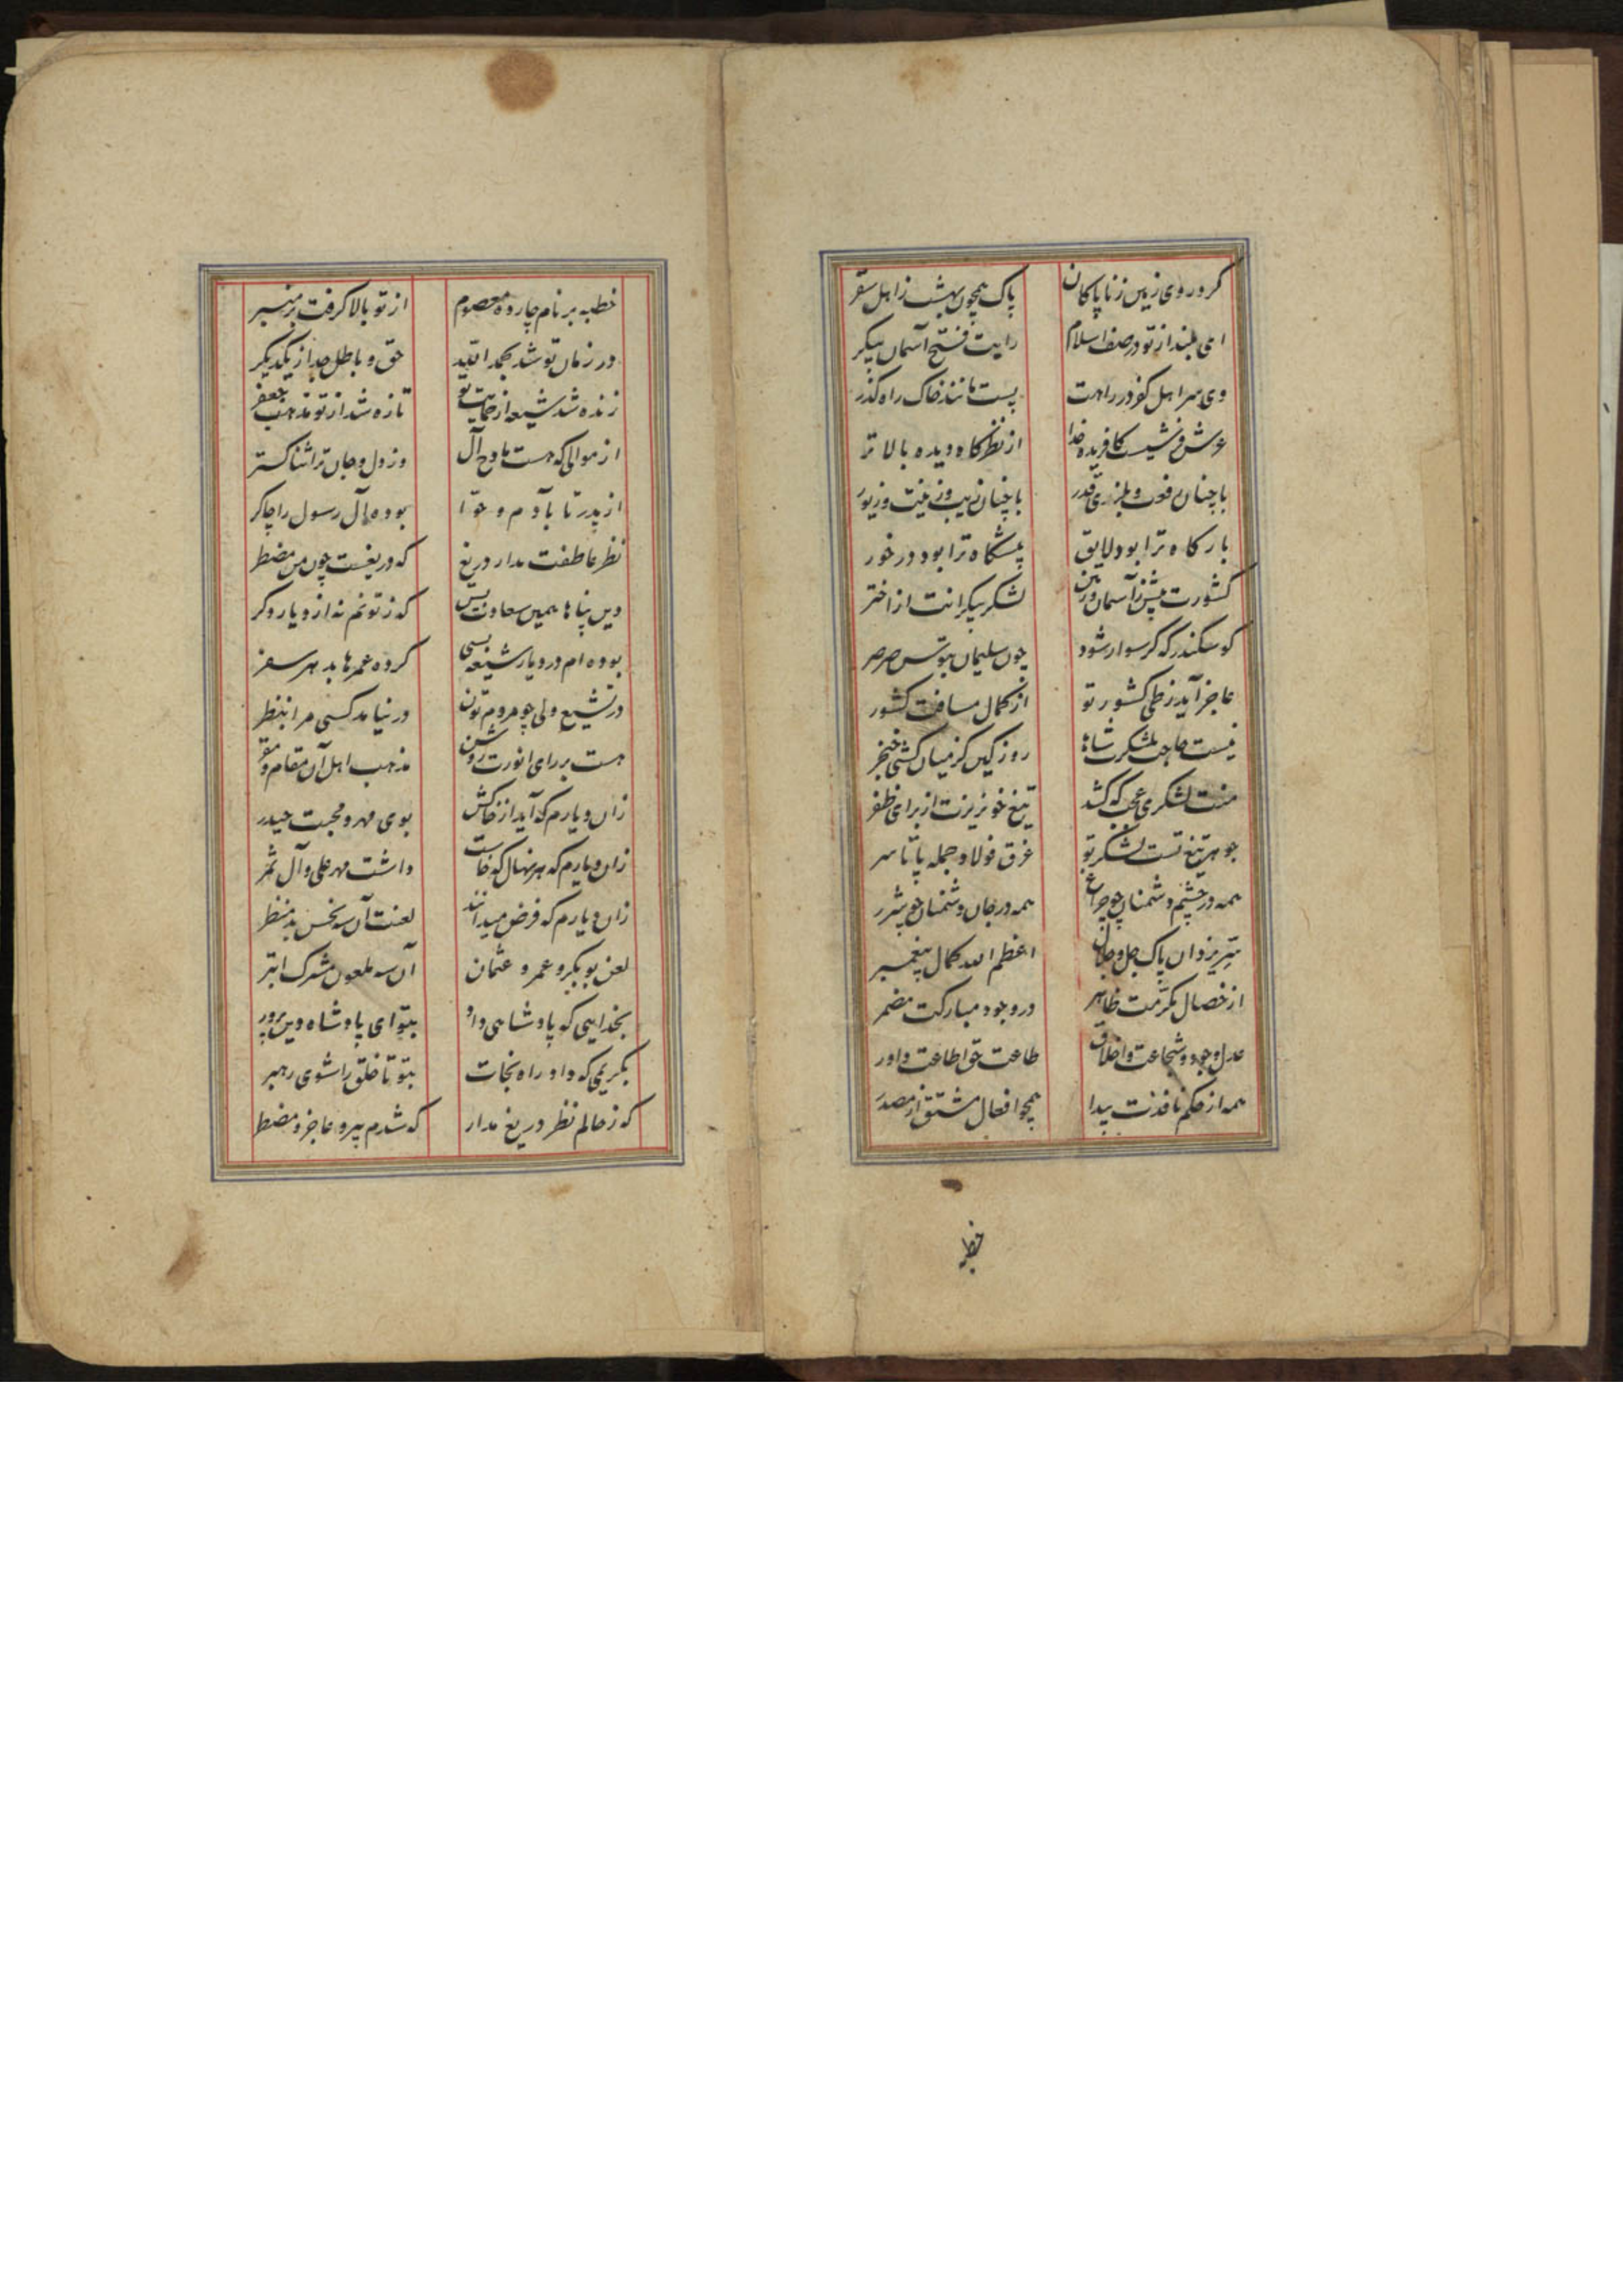 کرد روی زمین ز ناپاکان پاک همچون بهشت ز اهل سقر
ای بلند از تو در صف اسلام رایت فتح آسمان پیکر
وی سر اهل کفر در راهت پست مانند خاک راه کذر
عرش فرشیست کافریده خدا از نظرکاه دیده بالاتر
با چنان رفعت و بلندی قدر با چنان زیب و زینت و زیور
بارکاه ترا بود لایق پیشکاه ترا بود در خور
کشورت بیش ز آسمان و زمین لشکر بیکرانت از اختر
کو سکندر که کر سوار شود چون سلیمان بتوسن صرصر
عاجز آید ز طی کشور تو از کمال مسافت کشور
نیست حاجت بلشکرت شاها روز کین کز میان کشی خنجر
منت لشکری عجب که کشد تیغ خونریزت از برای ظفر
جوهر تیغ تست لشکر تو غرق فولاد جمله پا تا سر
همه در چشم دشمنان چو چراغ همه در جان دشمنان چو شرر
سر یزدان پاک جل و جلال اعظم الله کمال پیغمبر
از خصال مکرمت ظاهر در وجود مبارکت مضمر
عدل وجود و شجاعت و اخلاق طاعت حق اطاعت داور
همه از حکم نافذت پیدا همچو افعال مشتق از مصدر
خطبه
خطبه بر نام چارده معصوم از تو بالا کرفت بر منبر
در زمان تو شد بحمد الله حق و باطل جدا ز یکدیکر
زنده شد شیعه از حمایت تو تازه شد از تو مذهب جعفر
از موالی که هست مادح آل وز دل و جان ترا ثنا کستر
از پدر تا بآدم و حوا بوده آل رسول را چاکر
نظر عاطفت مدار دریغ که دریغست چون من مضطر
دین پناها همین سعادت بس که ز توانم نه از دیار دکر
بوده ام در دیار شیعه بسی کرده عمرها بدهر سفر
در تشیع ولی چو مردم تون در نیامد کسی مرا بنظر
هست بر رای انورت روشن مذهب اهل آن مقام و مقر
زان دیارم که آید از خاکش بوی مهر و محبت حیدر
زان دیارم که هر نهال که خاست داشت مهر علی و آل ثمر
زان دیارم که فرض میدانند لعنت آن سه نحس بد منظر
لعن بوبکر و عمر و عثمان آن سه ملعون مشرک ابتر
بخدایی که پادشاهی داد بتو ای پادشاه دین پرور
بکریمی که داد راه نجات بتو تا خلق را شوی رهبر
که ز حالم نظر دریغ مدار که شدم پیر و عاجز و مضطر